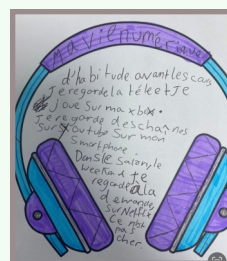 Ma vie numérique
d'habitude avant les cours
Je regarde la télé et Je
joue sur ma xbox.
Je regarde des chaînes
sur Youtube sur mon
Smartphone.
Dans le salon, le
weekend je
regarde à la
demande
sur Netflix
Ce n'est
pas
cher.